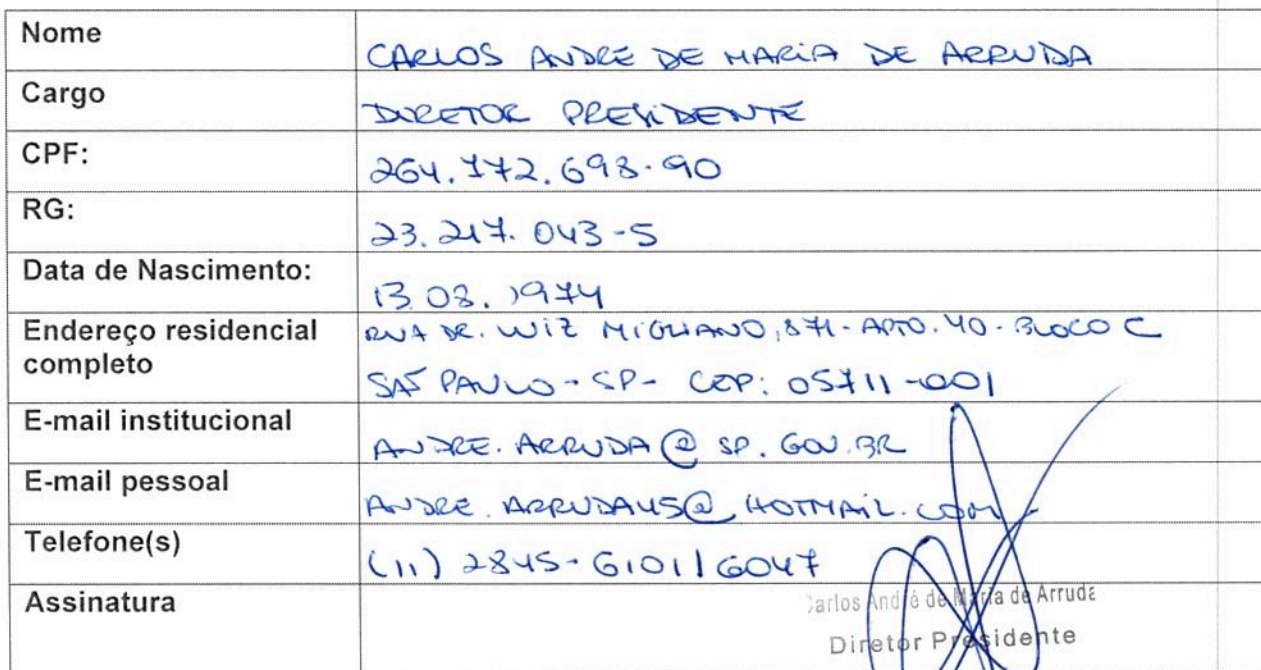 Nome
CARLOS ANDRÉ DE MARIA DE ARRUDA
Cargo
DIRETOR PRESIDENTE
CPF:
264.172.698-90
RG:
23.217.043-5
Data de Nascimento:
13.08.1974
Endereço residencial completo
RUA DR. LUIZ MIGLIANO, 871 - APTO. 40 - BLOCO C
SÃO PAULO - SP - CEP: 05711-001
E-mail institucional
ANDRE.ARRUDA@SP.GOV.BR
E-mail pessoal
ANDRE.ARRUDA45@HOTMAIL.COM
Telefone(s)
(11) 2845-6101/6047
Assinatura
Carlos André de Maria de Arruda
Diretor Presidente